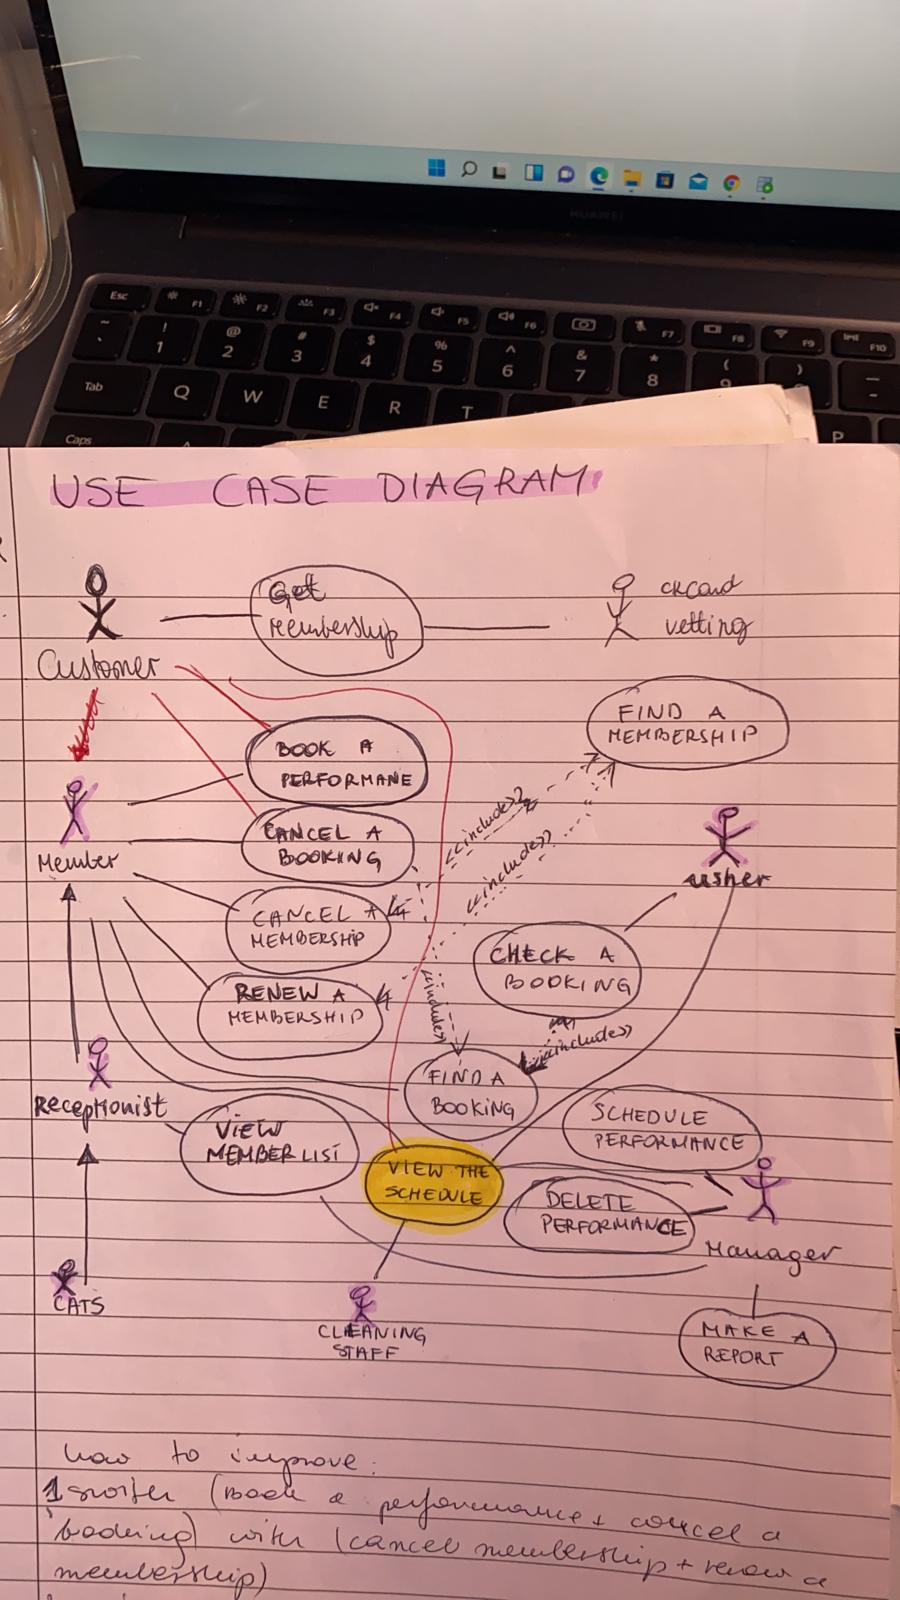 HUAWEI
Esc F1 F2 F3 F4 F5 F6 F7 F8 F9 F10
~ ! @ # $ % ^ & * ( )
1 2 3 4 5 6 7 8 9
Tab Q W E R T P
Caps
USE CASE DIAGRAM
Get
Membership
vetting
Customer
FIND A
MEMBERSHIP
BOOK A
PERFORMANE
<<include>>
CANCEL A
BOOKING
Member
<<include>>
usher
CANCEL A
MEMBERSHIP
CHECK A
BOOKING
RENEW A
MEMBERSHIP
<<include>>
<<include>>
FIND A
BOOKING
Receptionist
SCHEDULE
PERFORMANCE
VIEW
MEMBER LIST
VIEW THE
SCHEDULE
DELETE
PERFORMANCE
Manager
CATS
CLEANING
STAFF
MAKE A
REPORT
how to improve:
1 (Book a performance + cancel a
booking) with (cancel membership + renew a
membership)